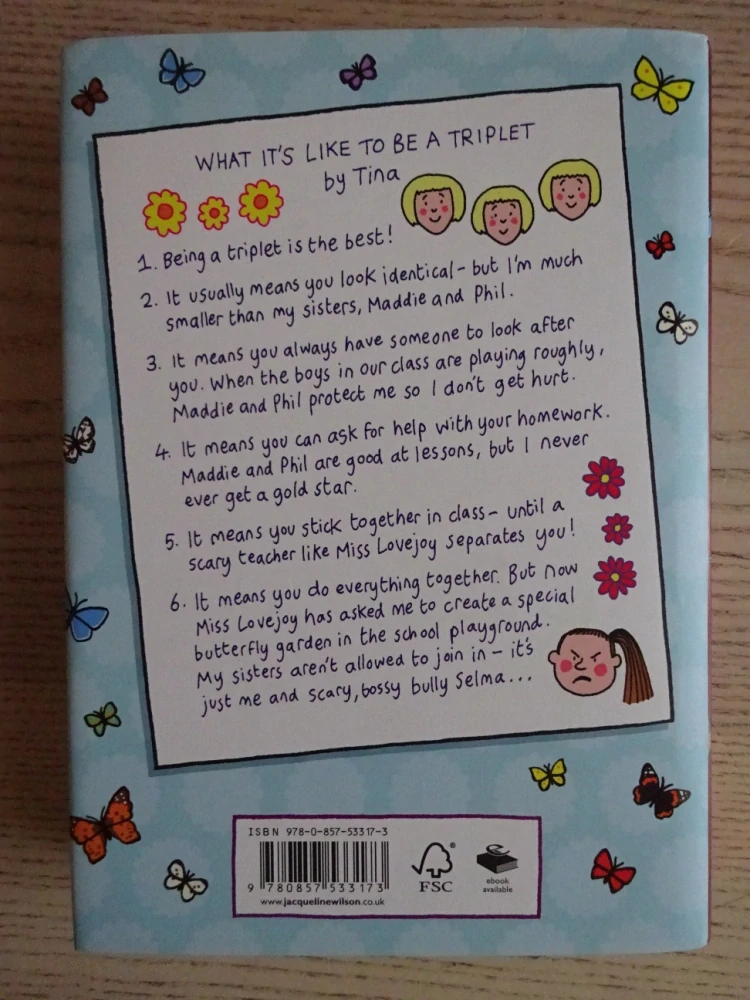 WHAT IT'S LIKE TO BE A TRIPLET
by Tina
1. Being a triplet is the best!
2. It usually means you look identical - but I'm much
smaller than my sisters, Maddie and Phil.
3. It means you always have someone to look after
you. When the boys in our class are playing roughly,
Maddie and Phil protect me so I don't get hurt.
4. It means you can ask for help with your homework.
Maddie and Phil are good at lessons, but I never
ever get a gold star.
5. It means you stick together in class - until a
scary teacher like Miss Lovejoy separates you!
6. It means you do everything together. But now
Miss Lovejoy has asked me to create a special
butterfly garden in the school playground.
My sisters aren't allowed to join in - it's
just me and scary, bossy bully Selma...
ISBN 978-0-857-53317-3
9 780857 533173
www.jacquelinewilson.co.uk
FSC®
ebook
available